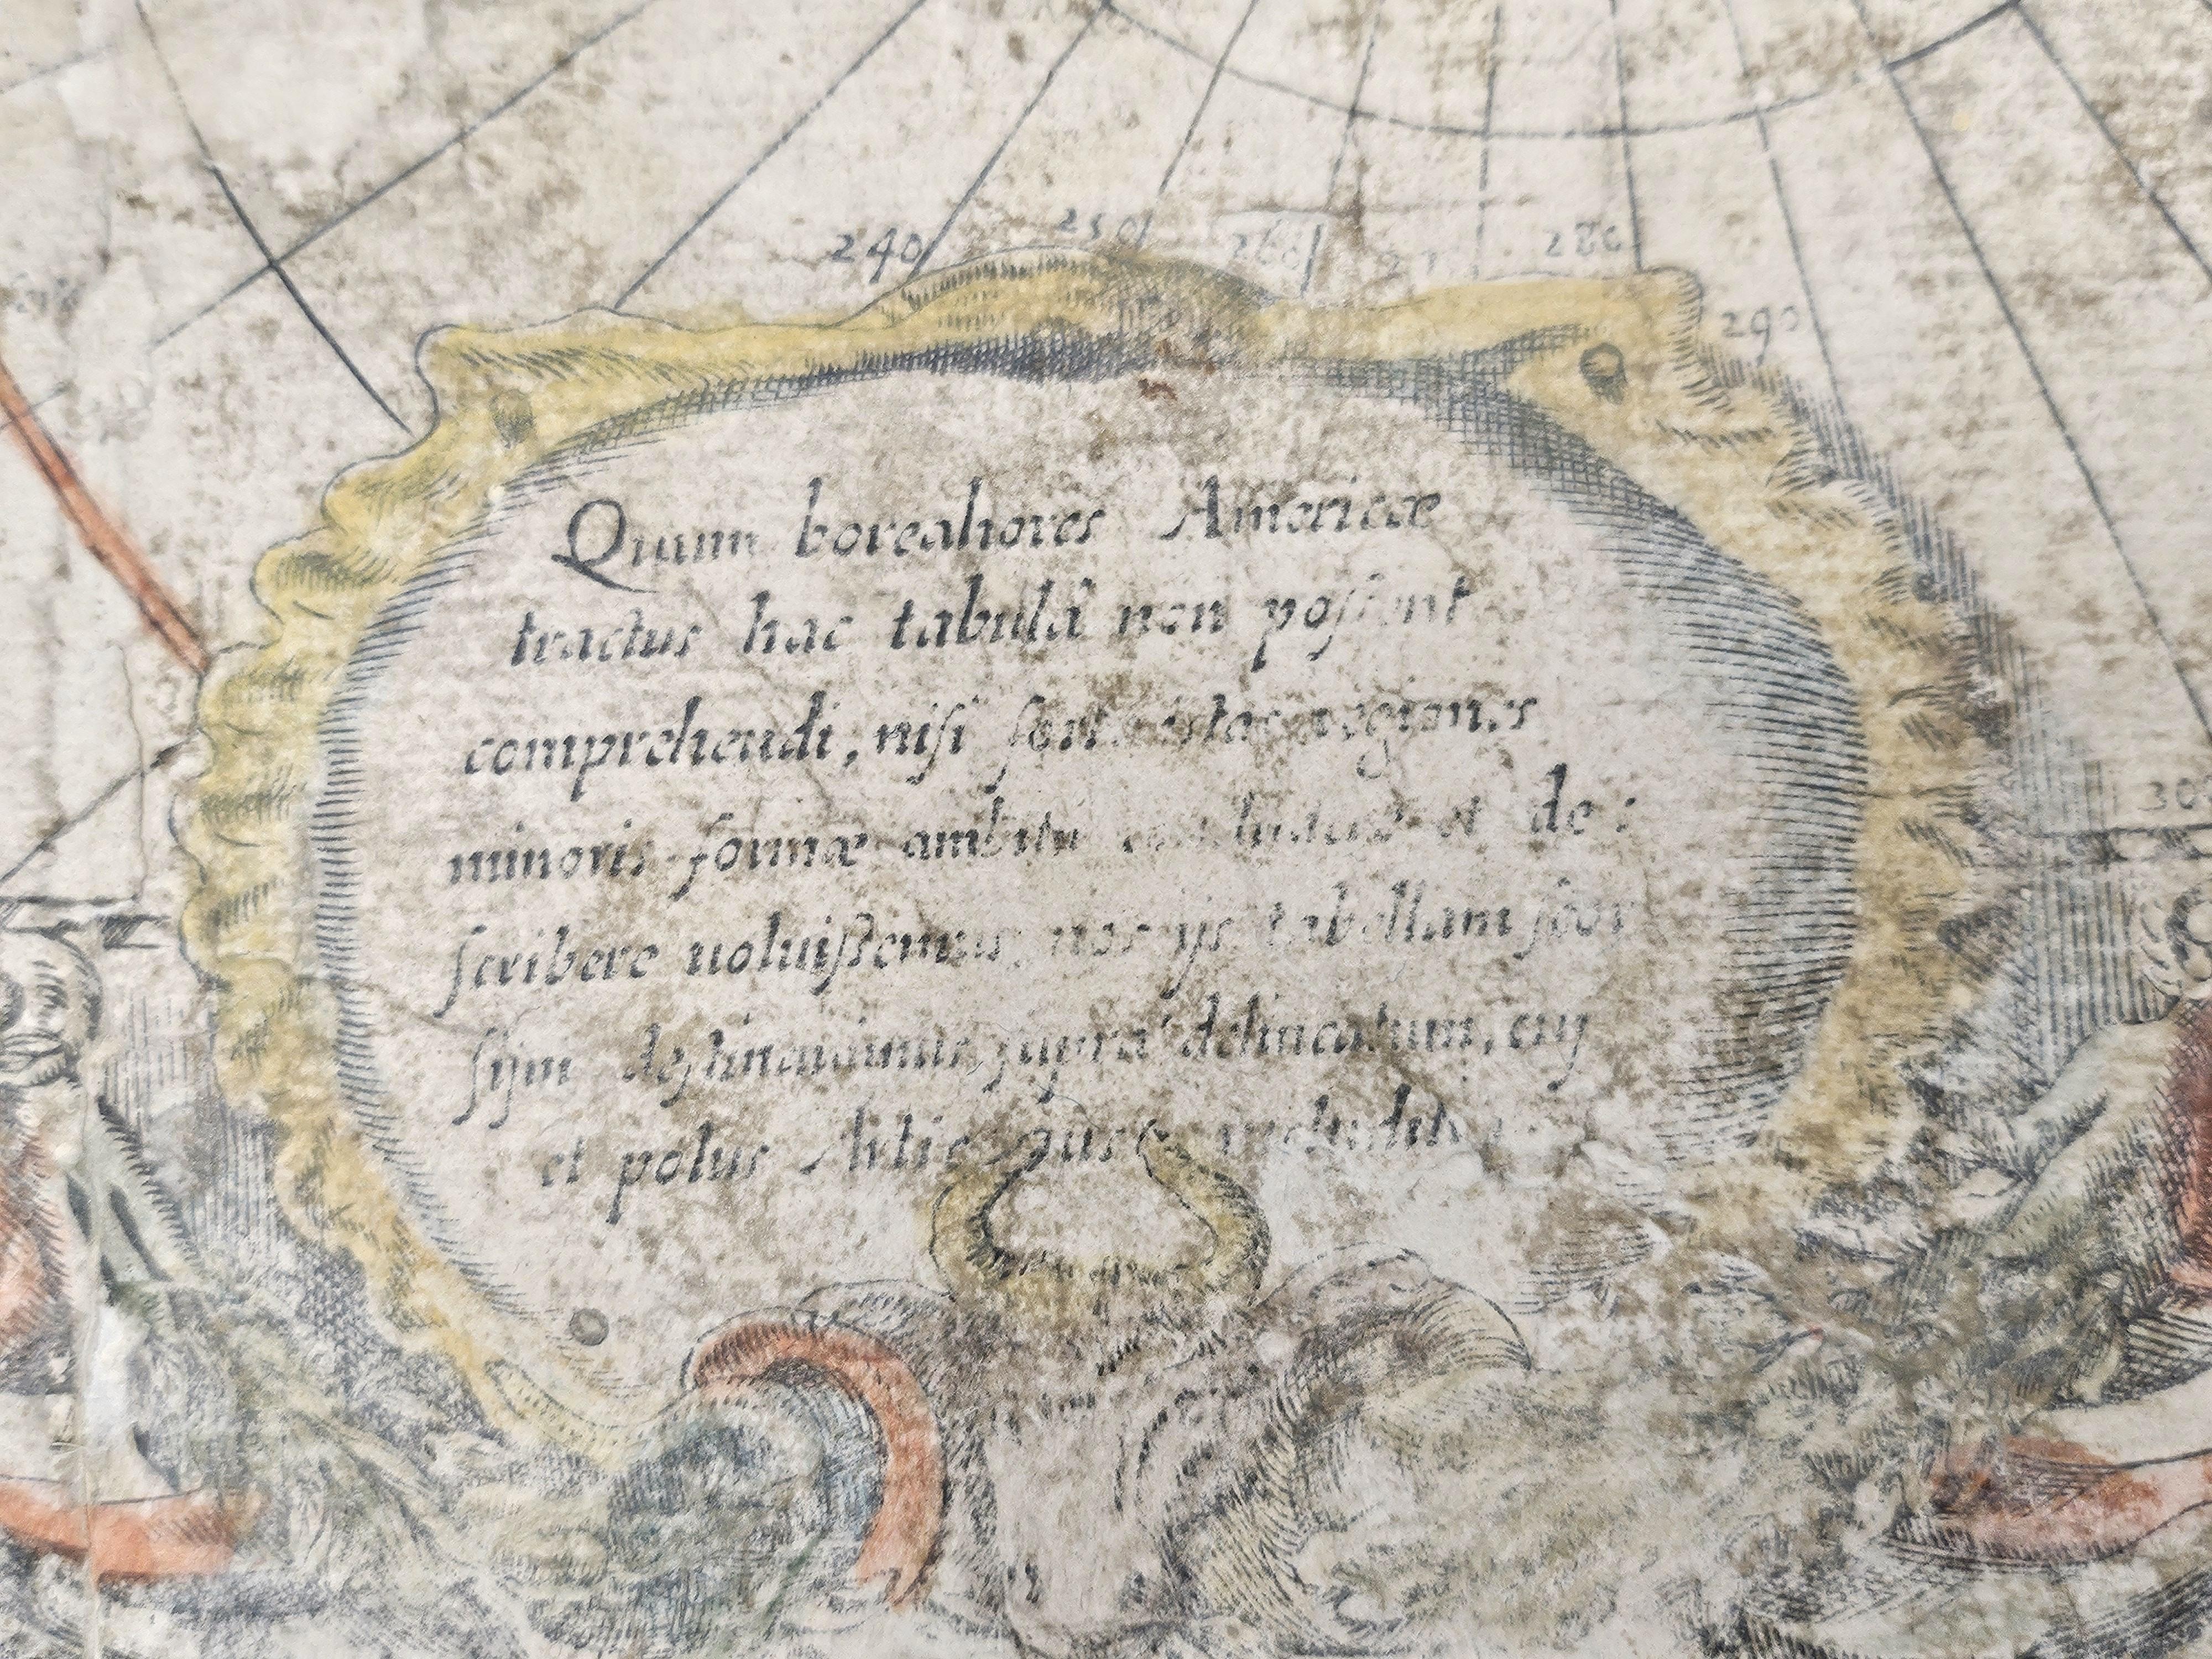 240 250 260 280
290
30
Quum borealiores Americæ
tractus hac tabulâ non possent
comprehendi, nisi regiones
minoris formæ ambitu et de:
scribere uoluissemus, nos ijs tabellam seor
sijm supra delineatum,
et polus